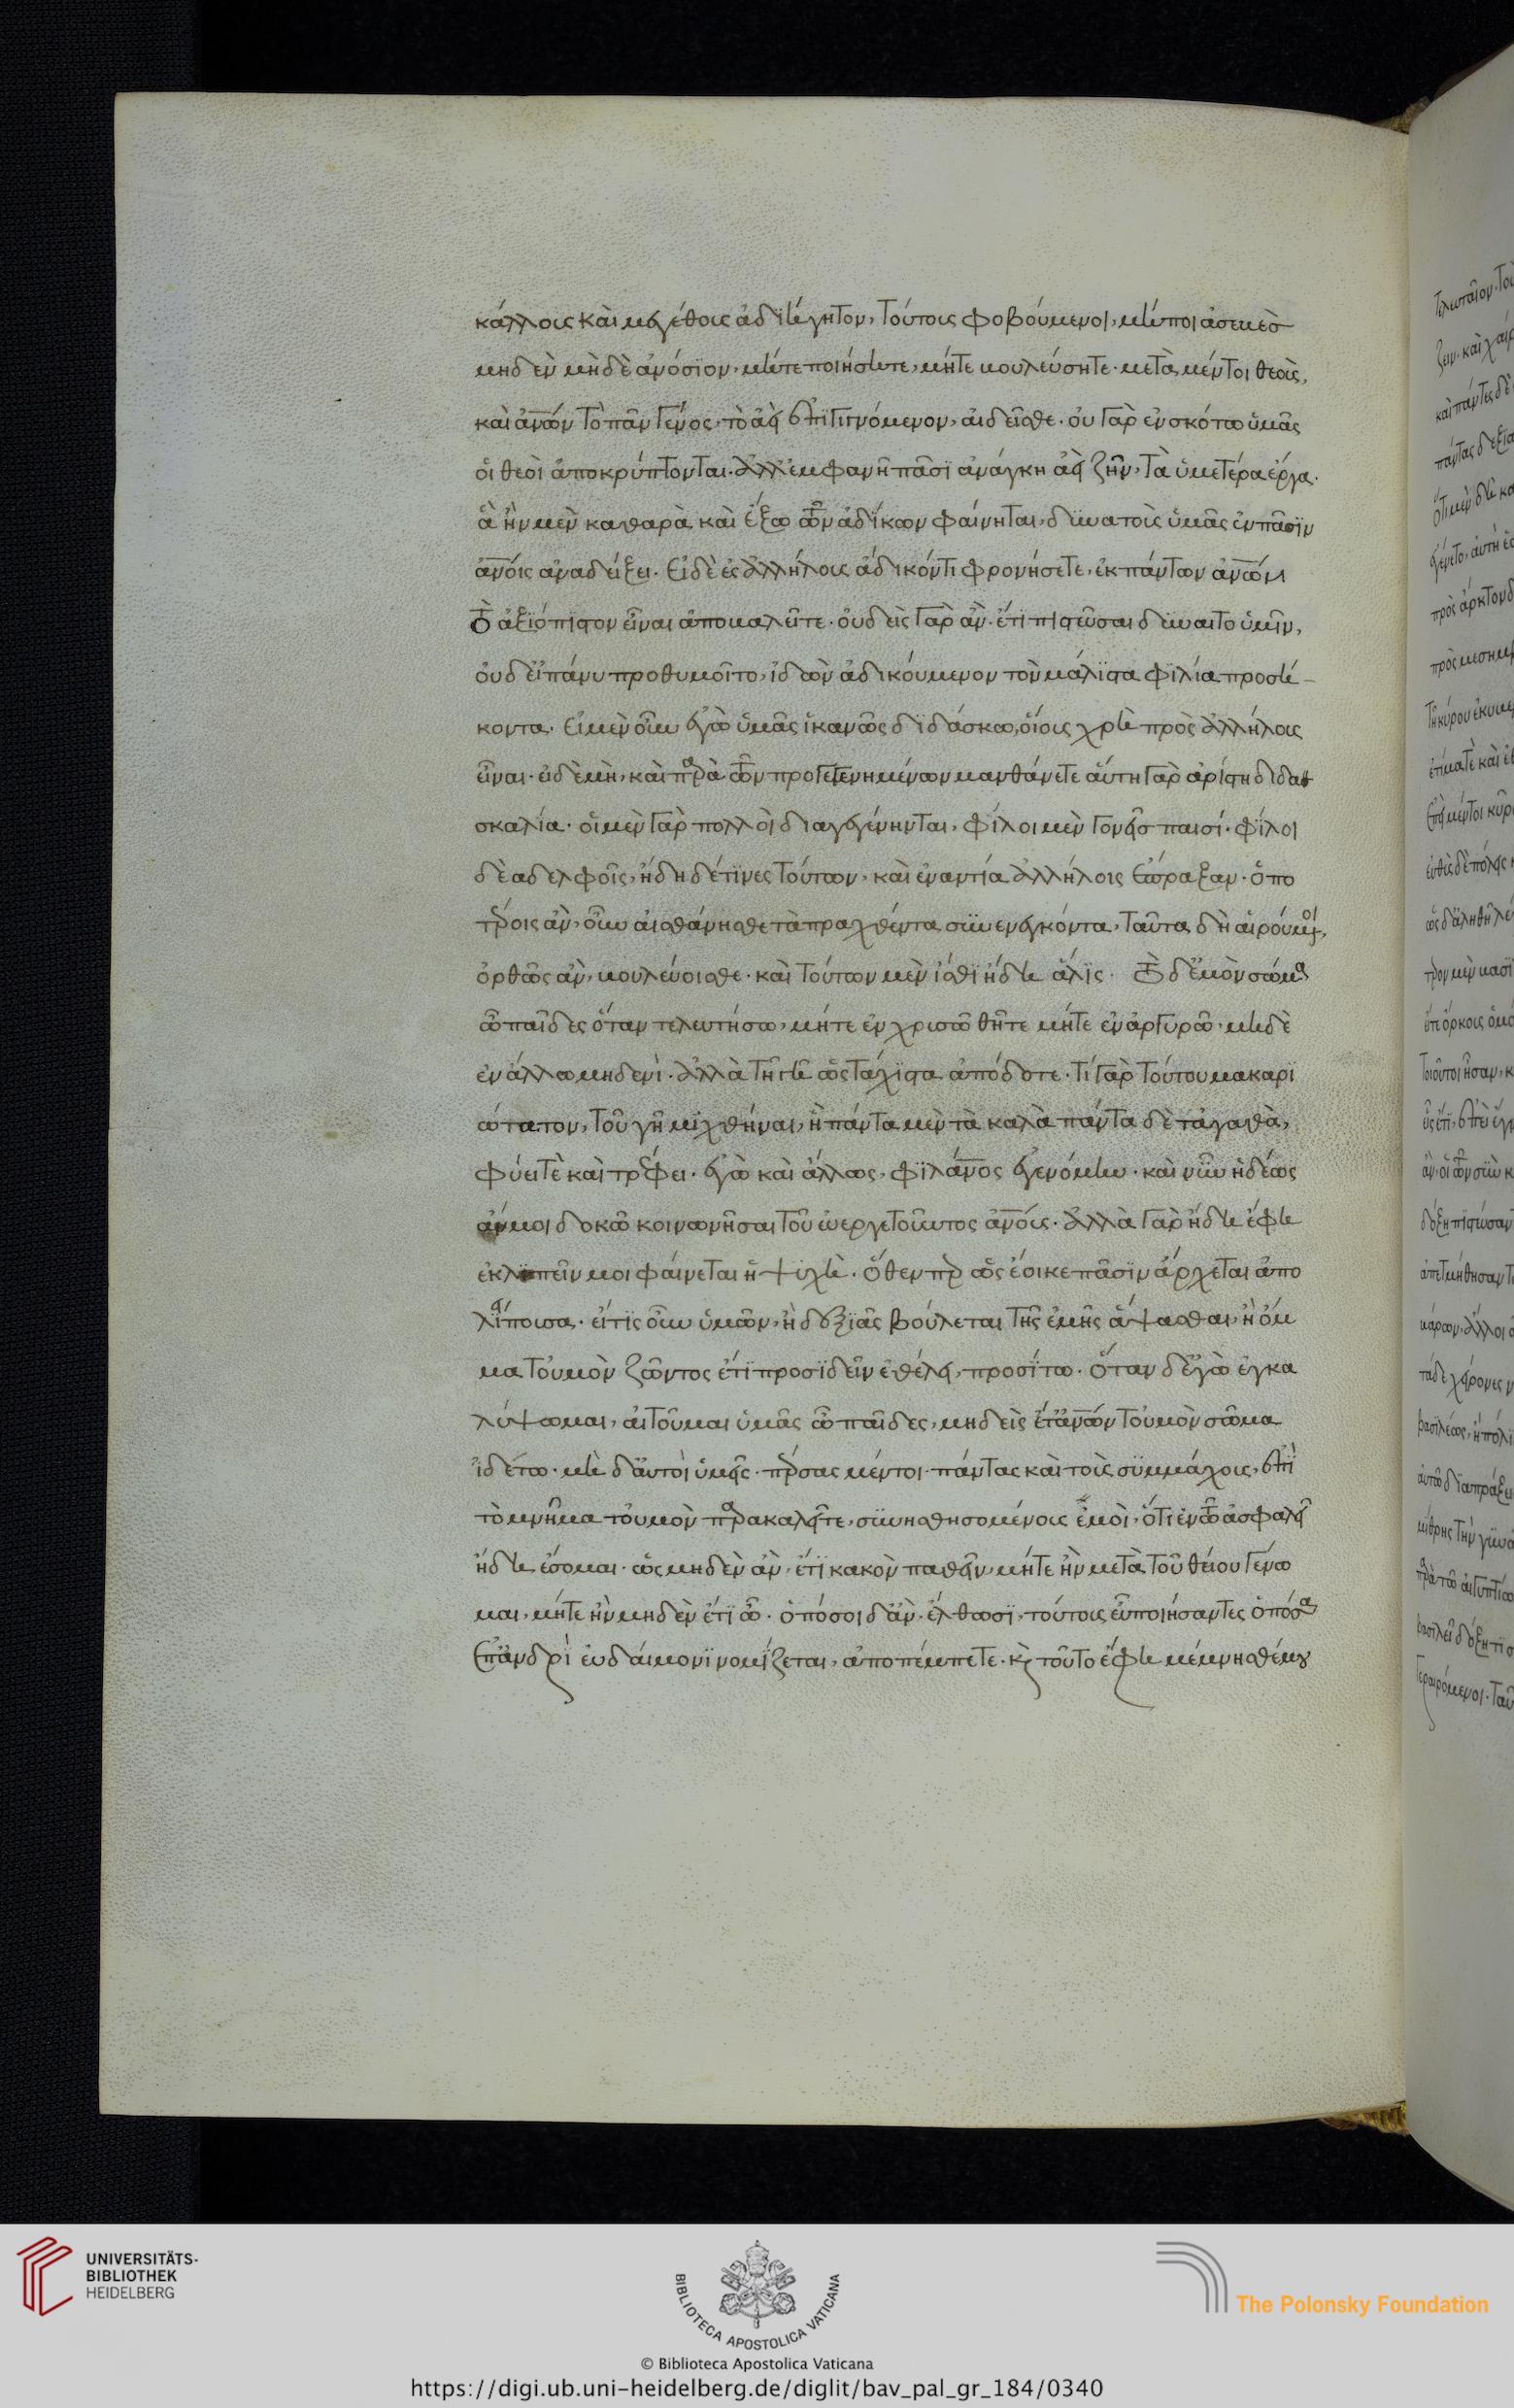 κάλλους καὶ μεγέθους ἀδιήγητον, τούτους φοβούμενοι, μήποτ ἀσεβὲς
μηδὲν μηδὲ ἀνόσϊον, μήτε ποιήσητε, μήτε βουλεύσητε. μετὰ μέντοι θεοὺς,
καὶ ἀνῶν τὸ πᾶν γένος, τὸ ἀεὶ ἐπιγιγνόμενον, αἰδεῖσθε. οὐ γὰρ ἐν σκότω ὑμᾶς
οἱ θεοὶ ἀποκρύπτονται. ἀλλ' ἐμφανῆ πᾶσϊ ἀνάγκη ἀεὶ ζῆν, τὰ ὑμετέρα ἔργα.
ἃ ἢν μὲν καθαρὰ καὶ ἔξω τῶν ἀδίκων φαίνηται, δϋνατοὺς ὑμᾶς ἐν πᾶσϊν
ἀνοις ἀναδείξει. Εἰ δὲ ἐς ἀλλήλους ἄδικόν τι φρονήσετε, ἐκ πάντων ἀνῶν
τὸ ἀξιόπιστον εἶναι ἀποβαλεῖτε. οὐδεὶς γὰρ ἂν ἔτι πιστεῦσαι δύναιτο ὑμῖν,
οὐδ εἰ πάνυ προθυμοῖτο, ἰδὼν ἀδικούμενον τὸν μάλιστα φϊλία προσή-
κοντα. Εἰ μὲν οὖν ἐγὼ ὑμᾶς ἱκανῶς δϊδάσκω, οἵους χρὴ πρὸς ἀλλήλους
εἶναι. εἰ δὲ μὴ, καὶ παρὰ τῶν προγεγενημένων μανθάνετε αὕτη γὰρ ἀρίστη διδα
σκαλία. οἱ μὲν γὰρ πολλοὶ διαγεγένηνται, φίλοι μὲν γονεῖς παισί. φίλοι
δὲ αδελφοῖς, ἤδη δέ τϊνες τούτων, καὶ ἐναντία ἀλλήλοις ἔπραξαν. ὁπο
τέροις ἂν, οὖν αἰσθάνησθε τὰ πραχθέντα συνενεγκόντα, ταῦτα δὴ αἱρούμενοι,
ὀρθῶς ἂν, βουλεύοισθε. καὶ τούτων μὲν ἴσθι ἤδη ἅλϊς. Τὸ δ' ἐμὸν σῶμα
ὦ παῖδες ὅταν τελευτήσω, μήτε ἐν χρυσῶ θῆτε μήτε ἐν ἀργυρῶ, μηδὲ
ἐν ἄλλω μηδενὶ. ἀλλὰ τῆ γῆ ὡς τάχιστα ἀπόδοτε. τί γὰρ τούτου μακαρϊ
ώτατον, τοῦ γῆ μιχθῆναι, ἣ πάντα μὲν τὰ καλὰ πάντα δὲ τἀγαθὰ,
φύει τὲ καὶ τρέφει. ἐγὼ καὶ ἄλλως, φϊλάνος ἐγενόμην. καὶ νῦν ἡδέως
ἄν μοι δοκῶ κοινωνῆσαι τοῦ εὐεργετοῦντος ἀνοις. ἀλλὰ γὰρ ἤδη ἔφη
ἐκλιπεῖν μοι φαίνεται ἡ ψυχὴ. ὅθεν περ ὡς ἔοικε πᾶσϊν ἄρχεται ἀπο
λείπουσα. εἴ τις οὖν ὑμῶν, ἢ δεξϊᾶς βούλεται τῆς ἐμῆς ἅψασθαι, ἢ ὄμ
μα τοὐμὸν ζῶντος ἔτϊ προσϊδεῖν ἐθέλει, προσίτω. ὅταν δ' ἐγὼ ἐγκα
λύψωμαι, αἰτοῦμαι ὑμᾶς ὦ παῖδες, μηδεὶς ἔτ' ἀνῶν τοὐμὸν σῶμα
ϊδέτω. μὴ δ' αὐτοὶ ὑμεῖς. πέρσας μέντοι πάντας καὶ τοὺς συμμάχους, ἐπὶ
τὸ μνῆμα τοὐμὸν παρακαλεῖτε, συνησθησομένους ἐμοὶ, ὅτι ἐν τῶ ἀσφαλεῖ
ἤδη ἔσομαι. ὡς μηδὲν ἂν, ἔτϊ κακὸν παθεῖν, μήτε ἢν μετὰ τοῦ θείου γένω
μαι, μήτε ἢν μηδὲν ἔτϊ ὦ. ὁπόσοι δ' ἂν, ἔλθωσϊ, τούτους εὖ ποιήσαντες ὁπόσα
ἐπ' ἀνδρὶ εὐδαίμονϊ νομίζεται, ἀποπέμπετε. κ τοῦτο ἔφη μέμνησθέ μου
UNIVERSITÄTS-
BIBLIOTHEK
HEIDELBERG
BIBLIOTECA APOSTOLICA VATICANA
The Polonsky Foundation
© Biblioteca Apostolica Vaticana
https://digi.ub.uni-heidelberg.de/diglit/bav_pal_gr_184/0340